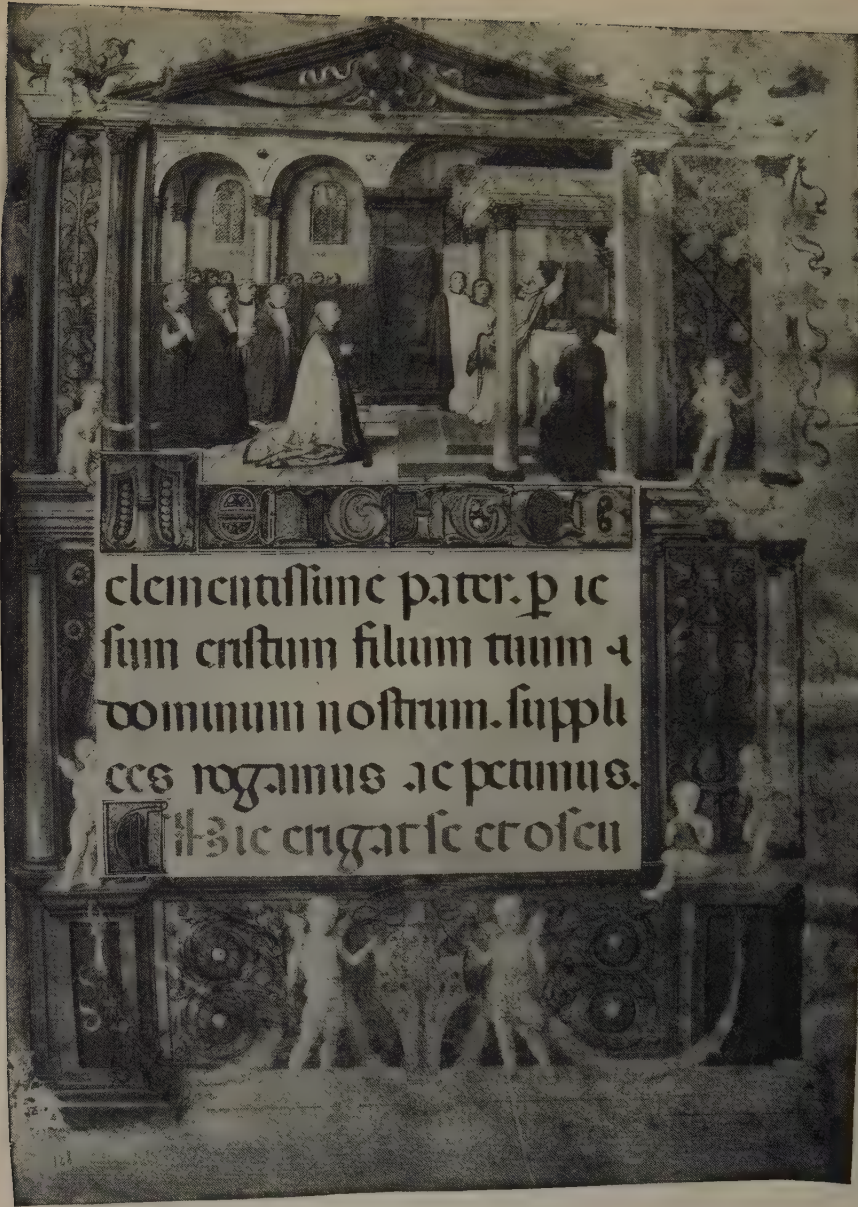 clementissime pater. ꝑ ie
sum cristum filium tuum ⁊
dominum nostrum. suppli
ces rogamus ac petimus.
Hic erigat se et oscu